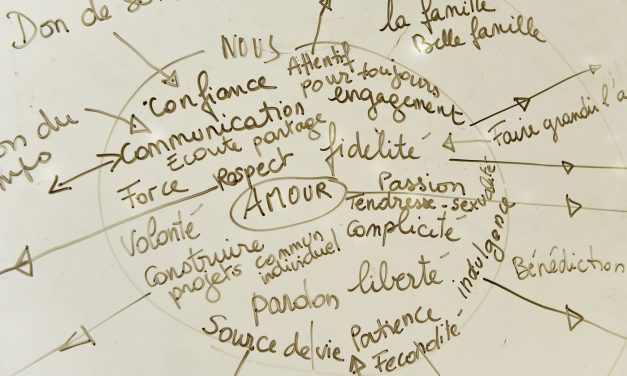 Don de
la famille
Belle famille
NOUS
Attentif
pour toujours
Confiance
engagement
Communication
Ecoute partage
Faire grandir l'a
on du
fidélité
Respect
Force
AMOUR
Passion
Tendresse - sexualité
Complicité
Volonté
Construire
projets commun
individuel
indulgence
Bénédiction
pardon
liberté
Source de vie
Patience
Fecondité